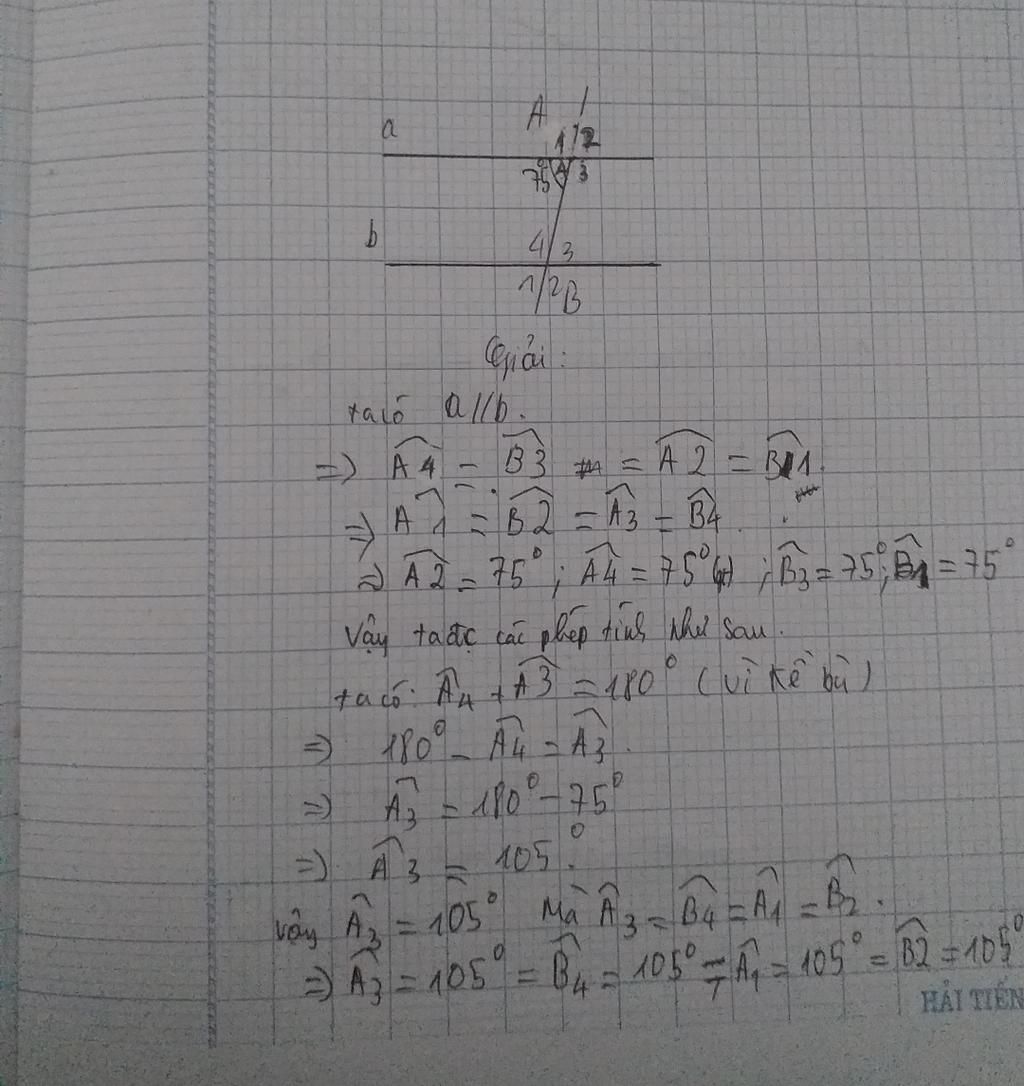 A
a
1 2
75° 4 3
b
4 3
1 2 B
Giải:
ta có a//b.
=> Â4 = B̂3 = Â2 = B̂1.
=> Â1 = B̂2 = Â3 = B̂4.
=> Â2 = 75°; Â4 = 75° ; B̂3 = 75°; B̂1 = 75°
Vậy ta đc các phép tính như sau.
ta có: Â4 + Â3 = 180° (vì kề bù)
=> 180° - Â4 = Â3.
=> Â3 = 180° - 75°
=> Â3 = 105°.
Vậy Â3 = 105° Mà Â3 = B̂4 = Â1 = B̂2.
=> Â3 = 105° = B̂4 = 105° = Â1 = 105° = B̂2 = 105°
HẢI TIẾN